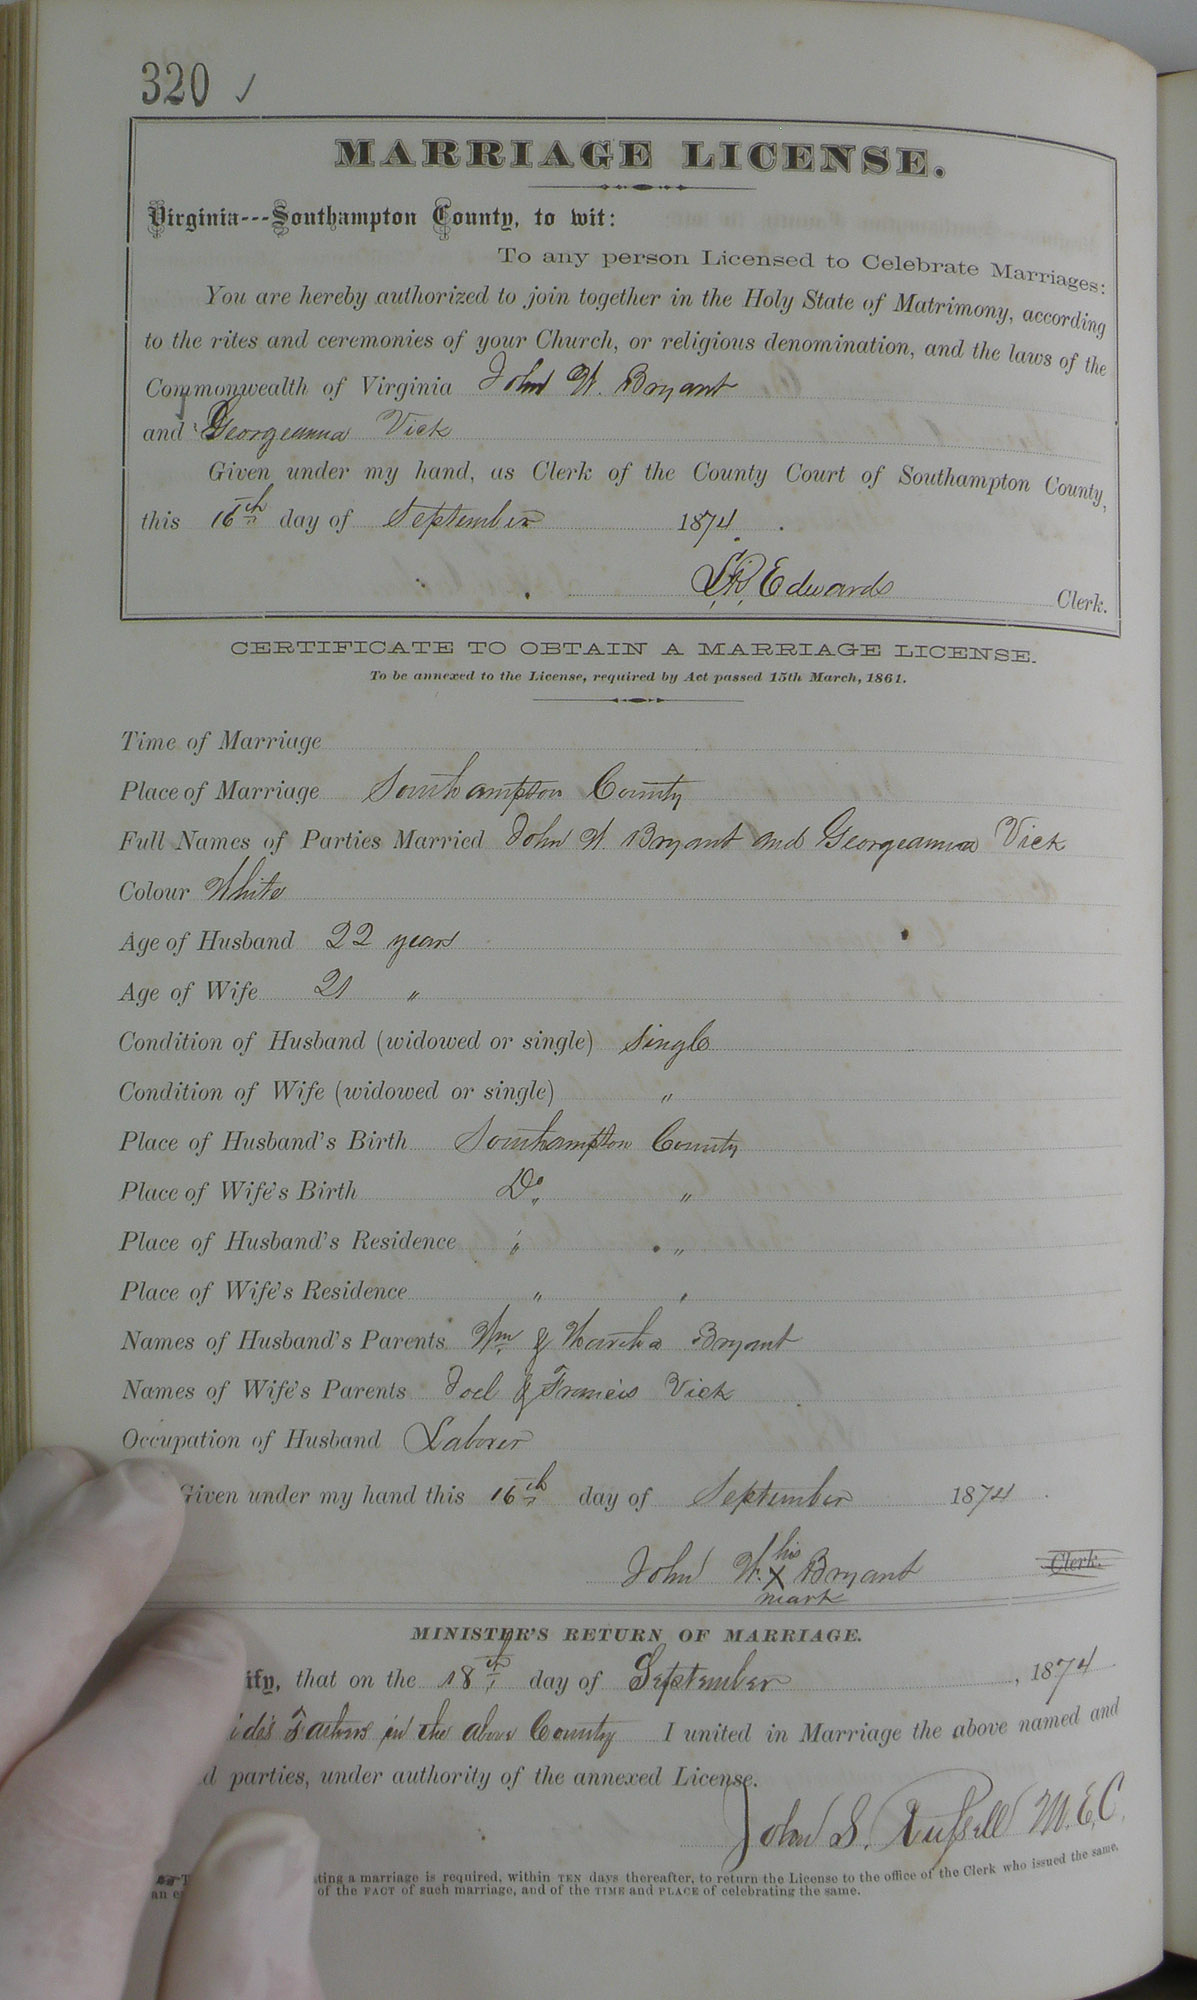 320 ✓
MARRIAGE LICENSE.
Virginia---Southampton County, to wit:
To any person Licensed to Celebrate Marriages:
You are hereby authorized to join together in the Holy State of Matrimony, according
to the rites and ceremonies of your Church, or religious denomination, and the laws of the
Commonwealth of Virginia John W. Bryant
and Georgeanna Vick
Given under my hand, as Clerk of the County Court of Southampton County,
this 16th day of September 1874.
L. R. Edwards Clerk.
CERTIFICATE TO OBTAIN A MARRIAGE LICENSE.
To be annexed to the License, required by Act passed 15th March, 1861.
Time of Marriage
Place of Marriage Southampton County
Full Names of Parties Married John W. Bryant and Georgeanna Vick
Colour White
Age of Husband 22 years
Age of Wife 21 "
Condition of Husband (widowed or single) single
Condition of Wife (widowed or single) "
Place of Husband's Birth Southampton County
Place of Wife's Birth Do. "
Place of Husband's Residence " "
Place of Wife's Residence " "
Names of Husband's Parents Wm & Martha Bryant
Names of Wife's Parents Joel & Francis Vick
Occupation of Husband Laborer
Given under my hand this 16th day of September 1874.
John W. his X mark Bryant Clerk.
MINISTER'S RETURN OF MARRIAGE.
ify, that on the 18th day of September, 1874
in the above County I united in Marriage the above named and
d parties, under authority of the annexed License.
John S. Russell M.E.C.
ting a marriage is required, within TEN days thereafter, to return the License to the office of the Clerk who issued the same,
an of the FACT of such marriage, and of the TIME and PLACE of celebrating the same.